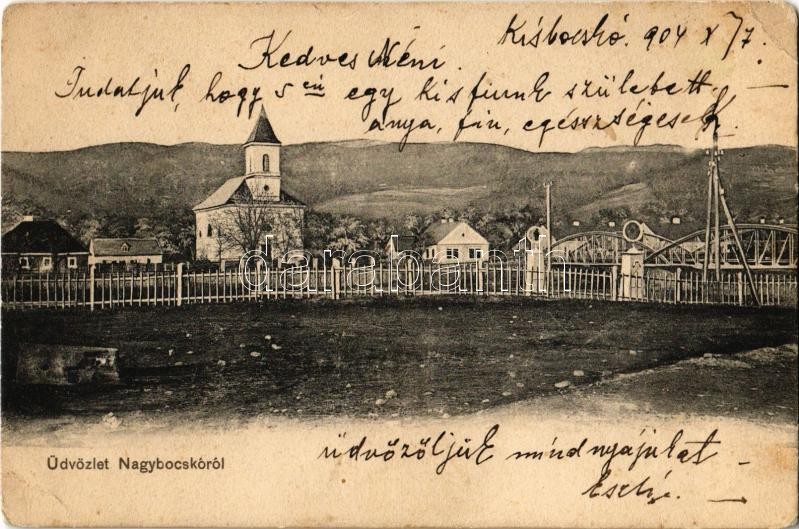 Kisbocskó. 904 X/7.
Kedves Néni.
Tudatjuk, hogy 5 én egy kis fiunk született
anya, fiu, egészségesek.
darabanth.com
Üdvözlet Nagybocskóról
üdvözöljük mindnyájukat
Eszti.